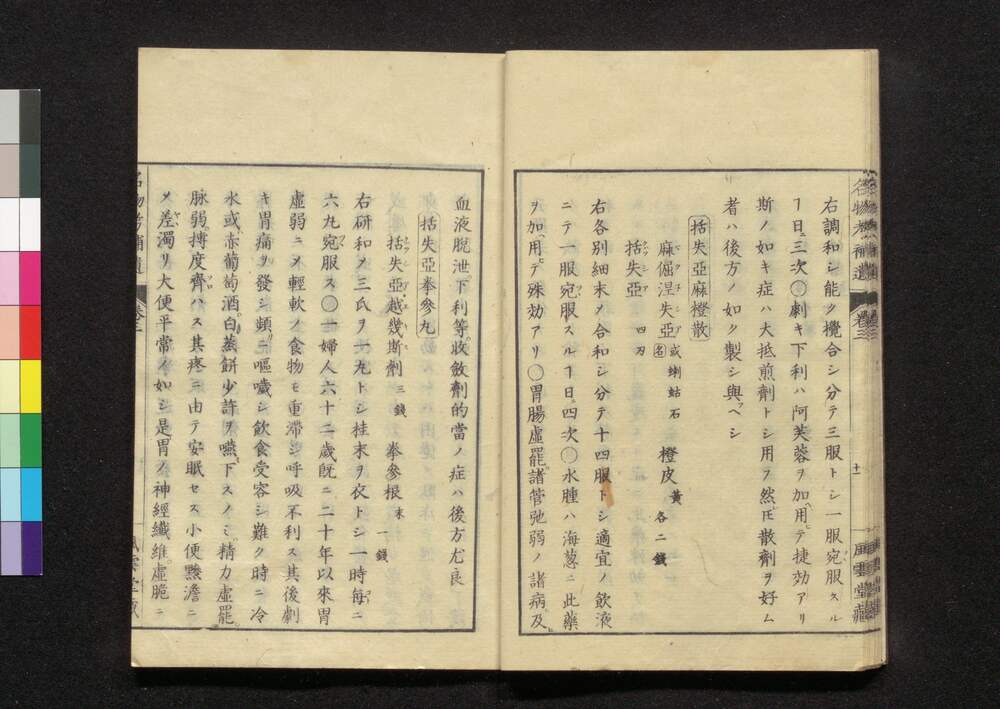 右調和シ能ク攪合シ分テ三服トシ一服宛服スル
1日ニ三次〇劇キ下利ハ阿芙蓉ヲ加ヘ用テ捷効アリ
斯ノ如キ症ハ大抵煎劑トシ用ヲ然𪜈散劑ヲ好ム
者ハ後方ノ如ク製シ與ヘシ
括失亞麻橙散
麻倔涅失亞 或名蝲蛄石 橙皮 黃 各二錢
括失亞 四刃
右各別細末ノ合和シ分テ十四服トシ適宜ノ飲液
ニテ一服宛服スル1日四次〇水腫ハ海葱ニ此藥
ヲ加ヘ用テ殊効アリ〇胃腸虛罷諸管弛弱ノ諸病及
名物考補遺 卷三 十一 風雲堂藏
血液脫泄下利等收斂劑的當ノ症ハ後方尤良
括失亞拳參丸
括失亞越幾斯劑 三錢 拳參根 末 一錢
右研和メ三氏ヲ一丸トシ桂末ヲ衣トシ一時每ニ
六丸宛服ス〇一婦人六十二歲旣ニ二十年以來胃
虛弱ニメ輕軟ノ食物モ重滯シ呼吸不利ス其後劇
キ胃痛ヲ發シ頻ニ嘔噦シ飮食受容シ難ク時ニ冷
水或赤葡萄酒白蒸餅少許ヲ嚥下スノミ精力虛罷
脉弱搏度齊ハス其疼ニ由テ安眠セス小便黲澹ニ
メ差濁リ大便平常ノ如シ是胃ノ神經纖維虛脆ニ
名物考補遺 卷三